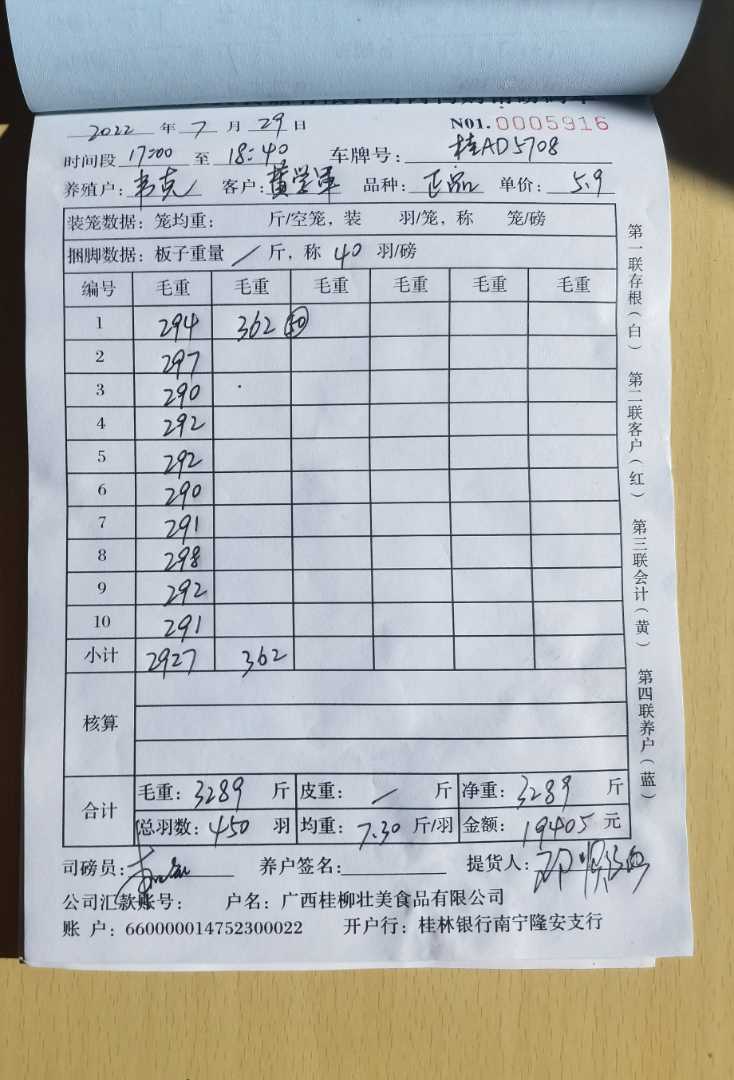 2022 年 7 月 29 日 NO1. 0005916
时间段 17:00 至 18:40 车牌号: 桂AD5708
养殖户: 韦克 客户: 黄学军 品种: 正品 单价: 5.9
装笼数据: 笼均重: 斤/空笼, 装 羽/笼, 称 笼/磅
捆脚数据: 板子重量 / 斤, 称 40 羽/磅
编号 毛重 毛重 毛重 毛重 毛重 毛重
1 294 362 50
2 297
3 290
4 292
5 292
6 290
7 291
8 298
9 292
10 291
小计 2927 362
核算
合计
毛重: 3289 斤 皮重: / 斤 净重: 3289 斤
总羽数: 450 羽 均重: 7.30 斤/羽 金额: 19405 元
司磅员: 养户签名: 提货人:
公司汇款账号: 户名: 广西桂柳壮美食品有限公司
账 户: 660000014752300022 开户行: 桂林银行南宁隆安支行
第一联存根(白) 第二联客户(红) 第三联会计(黄) 第四联养户(蓝)